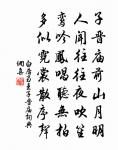 子晋庙前山月明
人闻往往夜吹笙
鸾吟凤唱听无拍
多似霓裳散序声
白居易王子晋庙词典
网集